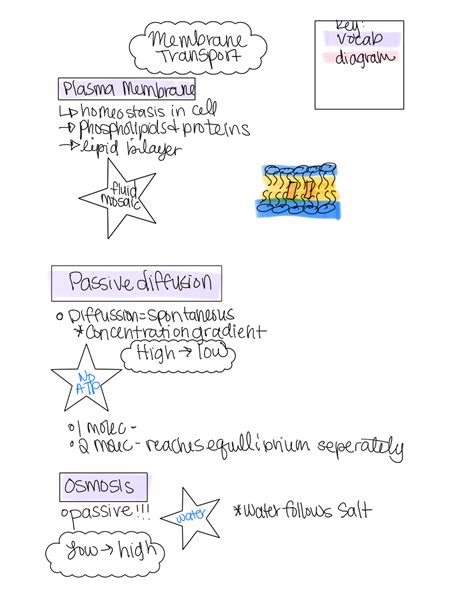 Membrane
Transport
Key:
vocab
diagram
Plasma Membrane
↳ homeostasis in cell
→ Phospholipids & proteins
→ lipid bilayer
fluid
mosaic
Passive diffusion
o Diffussion = spontaneous
*Concentration gradient
High → low
No
ATP
o 1 molec -
o 2 molec - reaches equillibrium seperately
Osmosis
o passive!!!
water
*Water follows Salt
low → high